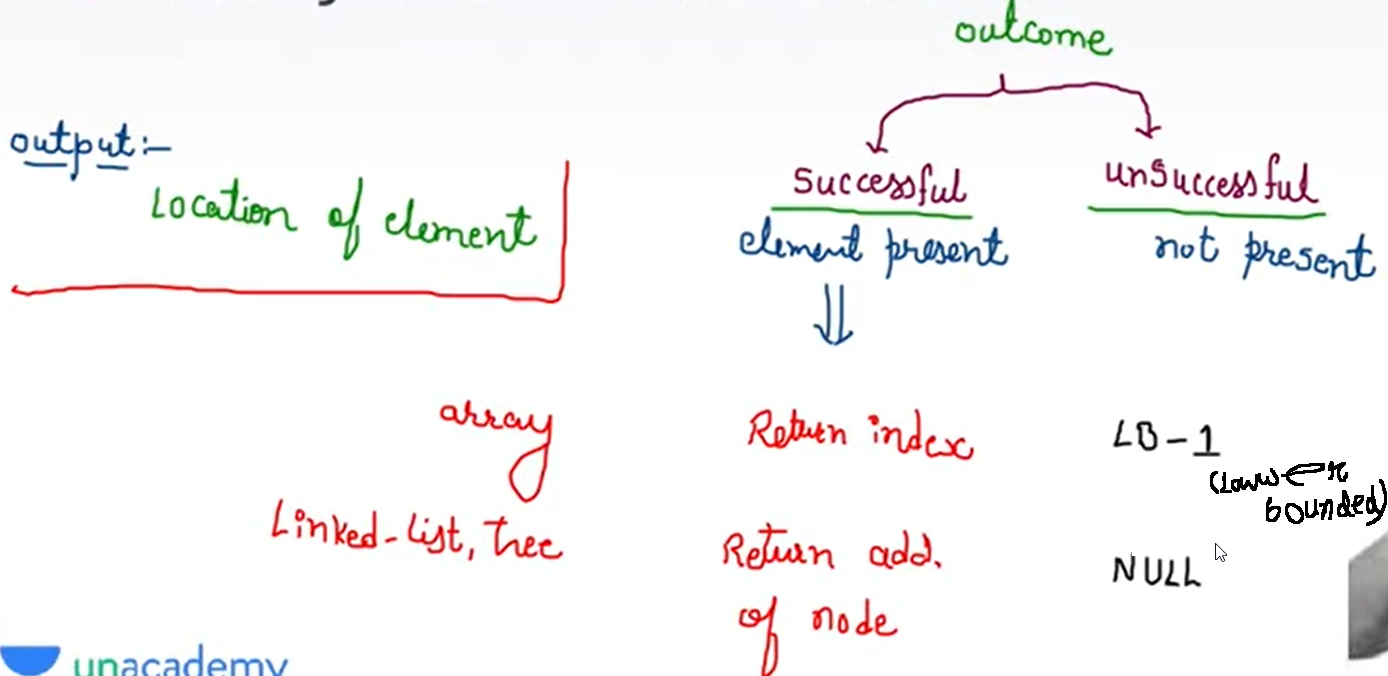 outcome
output:-
Location of element
Successful
unSuccessful
element present
not present
array
Return index
LB-1
(Lower
bounded)
Linked-List, Tree
Return add.
of node
NULL
unacademy